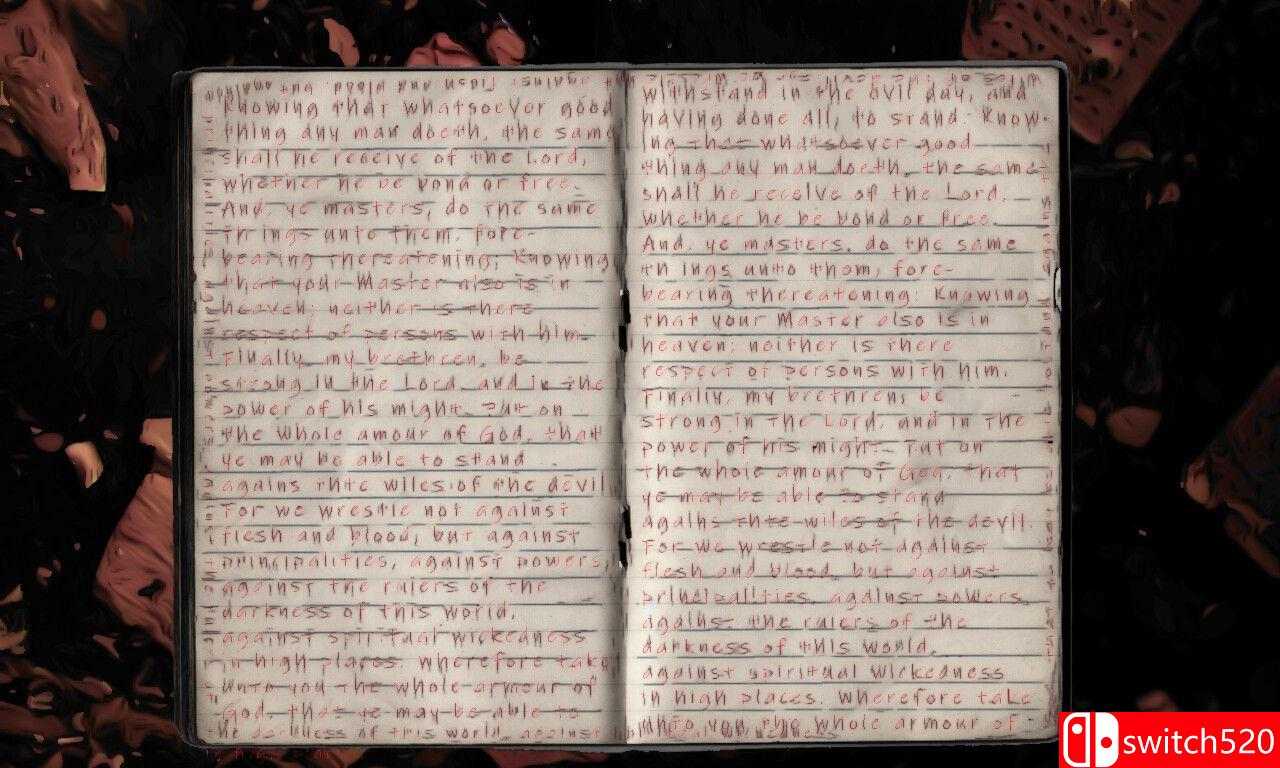 Knowing that whatsoever good
thing any man doeth, the same
shall he receive of the Lord,
whether he be bond or free.
And, ye masters, do the same
things unto them, fore-
bearing thereatening; Knowing
that your Master also is in
heaven; neither is there
respect of persons with him.
Finally, my brethren, be
strong in the Lord, and in the
power of his might. Put on
the whole amour of God, that
ye may be able to stand
agains thte wiles of the devil
For we wrestle not against
flesh and blood, but against
principalities, against powers,
against the rulers of the
darkness of this world,
against spiritual wickedness
in high places. Wherefore take
unto you the whole armour of
God, that ye may be able to
the darkness of this world, against
withstand in the evil day, and
having done all, to stand. Know-
ing that whatsoever good
thing any man doeth, the same
shall he receive of the Lord,
whether he be bond or free.
And, ye masters, do the same
th ings unto them, fore-
bearing thereatening: Knowing
that your Master also is in
heaven; neither is there
respect of persons with him.
Finally, my brethren, be
strong in the Lord, and in the
power of his might. Put on
the whole amour of God, that
ye may be able to stand
agains thte wiles of the devil.
For we wrestle not against
flesh and blood, but against
principalities, against powers,
agains the rulers of the
darkness of this world,
against spiritual wickedness
in high places. Wherefore take
unto you the whole armour of
switch520